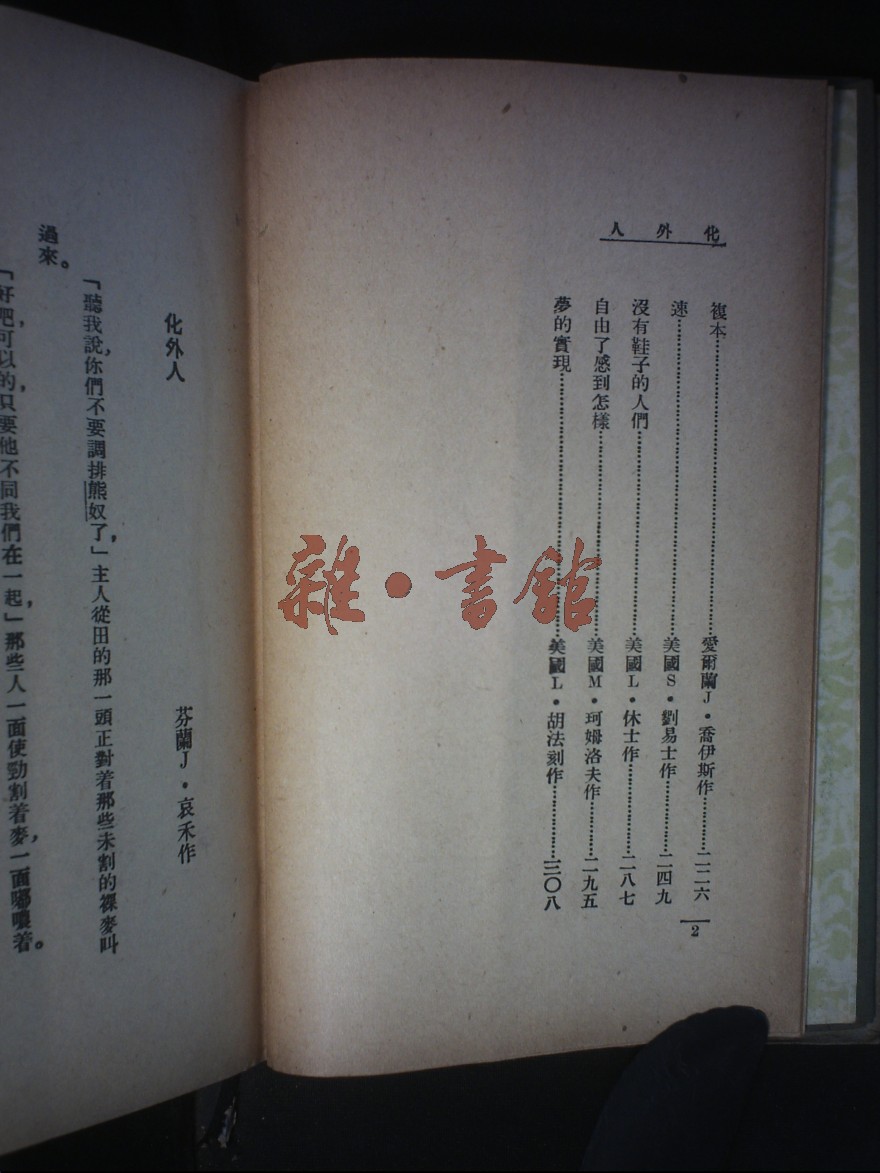 化外人
複本……愛爾蘭J·喬伊斯作……二二六
速……美國S·劉易士作……二四九
沒有鞋子的人們……美國L·休士作……二八七
自由了感到怎樣……美國M·珂姆洛夫作……二九五
夢的實現……美國L·胡法刻作……三〇八
2
雜·書館
化外人
芬蘭J·哀禾作
「聽我說，你們不要調排熊奴了，」主人從田的那一頭正對着那些未割的裸麥叫
過來。
「好吧，可以的，只要他不同我們在一起，」那些人一面使勁割着麥，一面嘟噥着。